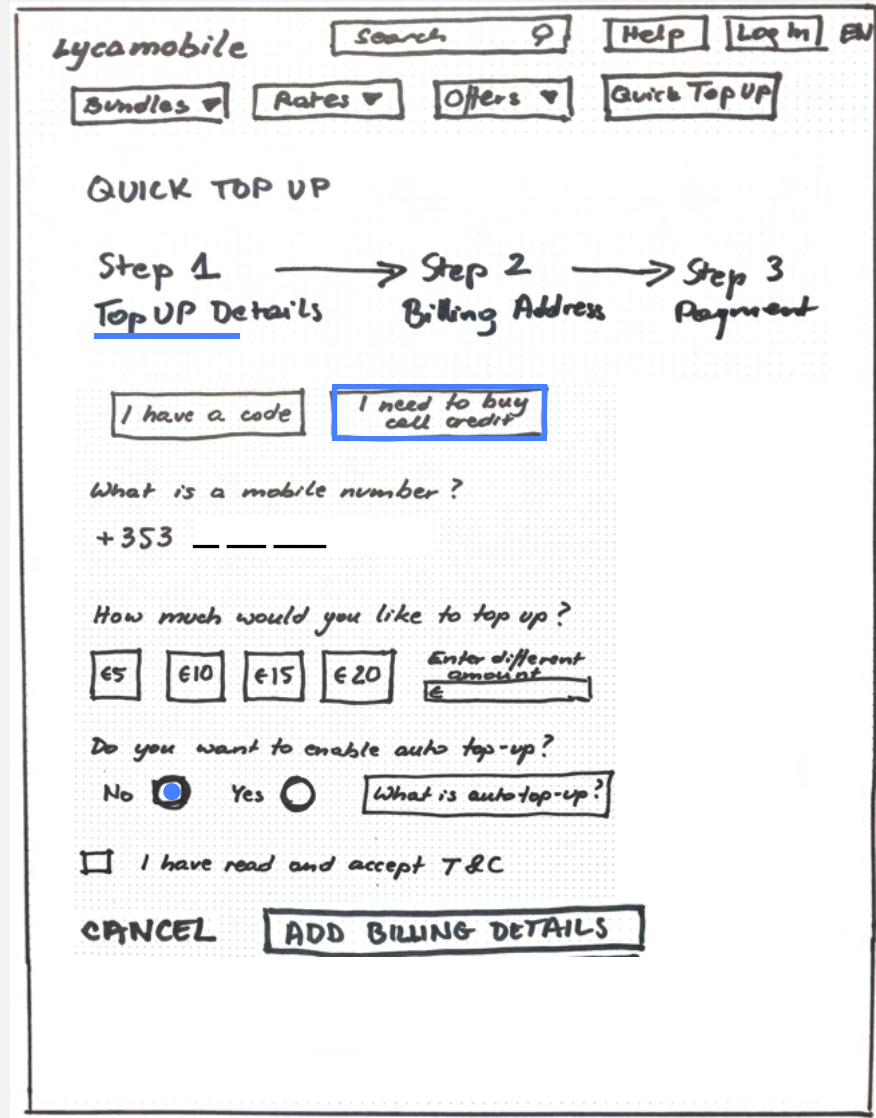 Lycamobile Search Help Log In EN
Bundles Rates Offers Quick Top UP
QUICK TOP UP
Step 1 Step 2 Step 3
Top UP Details Billing Address Payment
I have a code
I need to buy
cell credit
What is a mobile number?
+353
How much would you like to top up?
€5 €10 €15 €20
Enter different
amount
€
Do you want to enable auto top-up?
No Yes What is auto top-up?
I have read and accept T&C
CANCEL ADD BILLING DETAILS